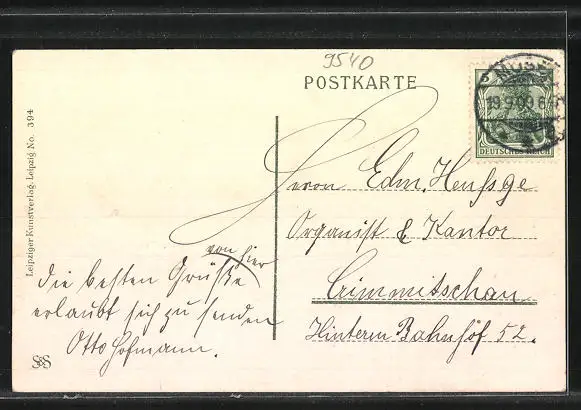 9540
POSTKARTE
5
19.9.09.6
DEUTSCHES REICH
Leipziger Kunstverlag. Leipzig No. 394
Herrn Edm. Heufsge
Organist & Kantor
Crimmitschau
Hinterm Bahnhof 52.
von hier
die besten Grüße
erlaubt sich zu senden
Otto Hofmann.